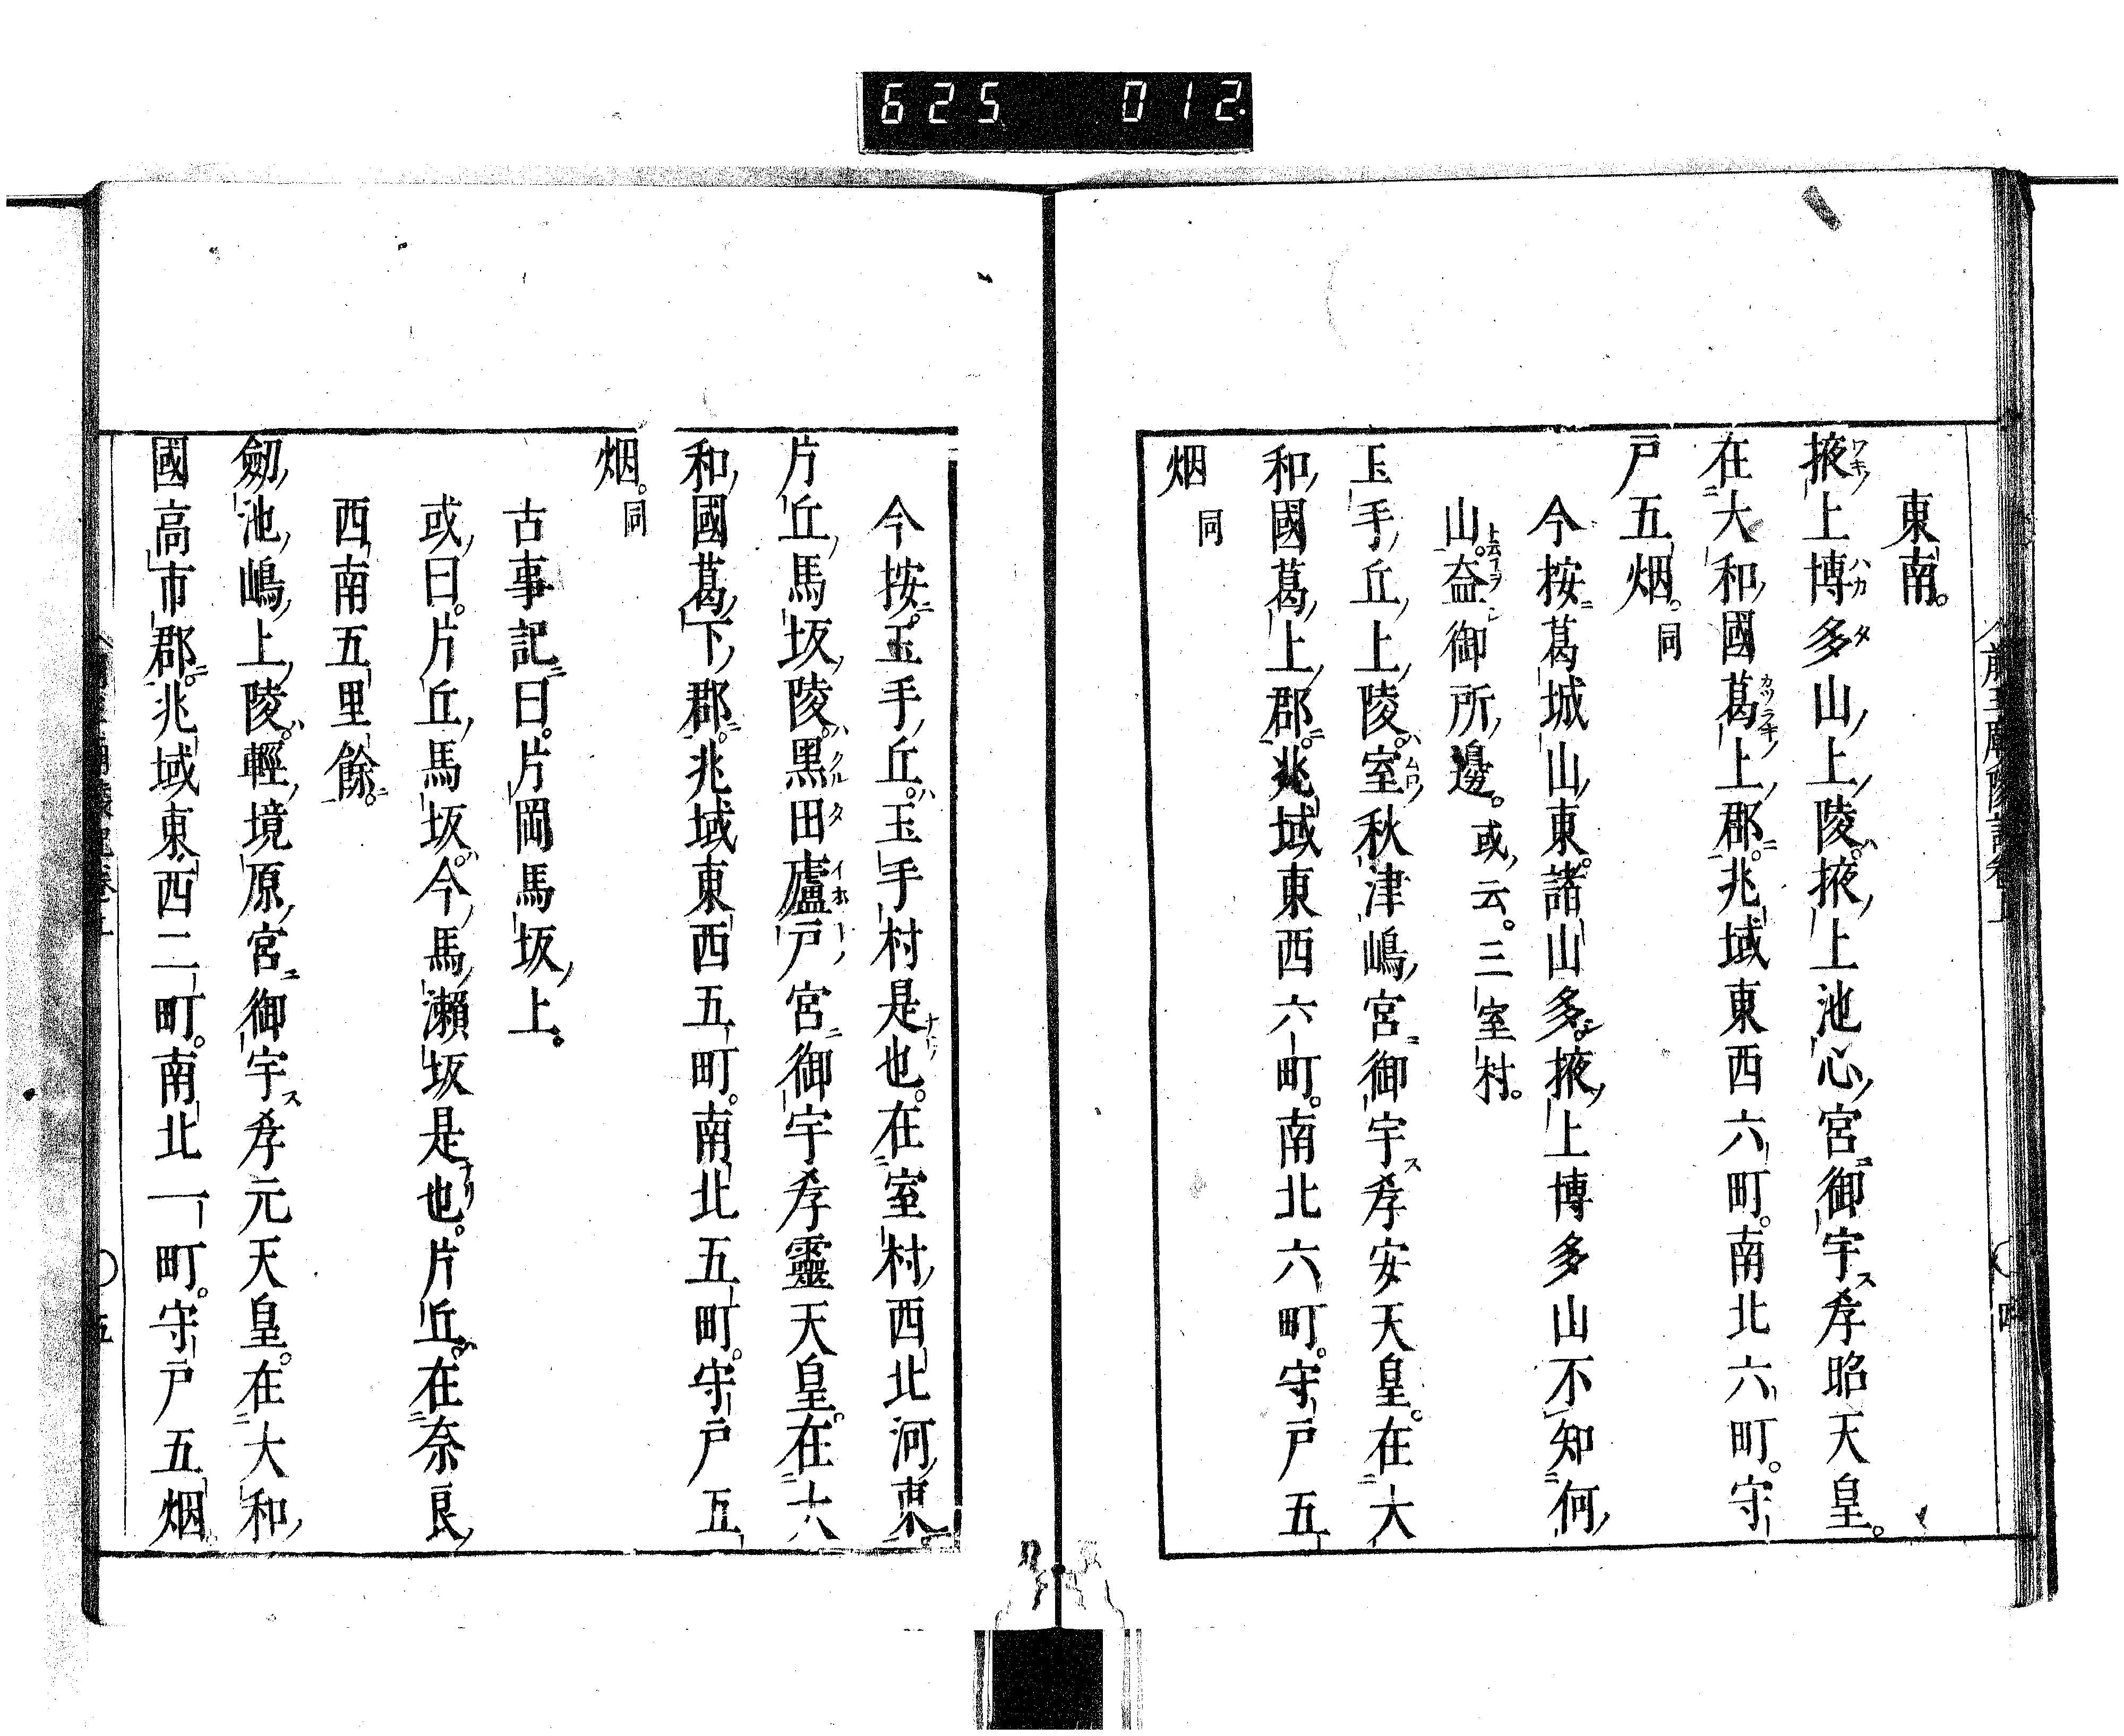 625 012
東南。
掖上博多山上陵。掖上池心宮御宇孝昭天皇。
在大和國葛上郡。兆域東西六町。南北六町。守
戸五烟。同
今按葛城山東。諸山多。掖上博多山不知何
山。益御所邊。或云。三室村。
玉手丘上陵。室秋津嶋宮御宇孝安天皇。在大
和國葛上郡。兆域東西六町。南北六町。守戸五
烟 同
今按。玉手丘。玉手村是也。在室村西北河東。
片丘馬坂陵。黒田廬戸宮御宇孝靈天皇。在大
和國葛下郡。兆域東西五町。南北五町。守戸五
烟。同
古事記曰。片岡馬坂上。
或曰。片丘馬坂。今馬瀬坂是也。片丘。在奈良
西南五里餘。
劒池嶋上陵。輕境原宮御宇孝元天皇。在大和
國高市郡。兆域東西二町。南北一町。守戸五烟。
五